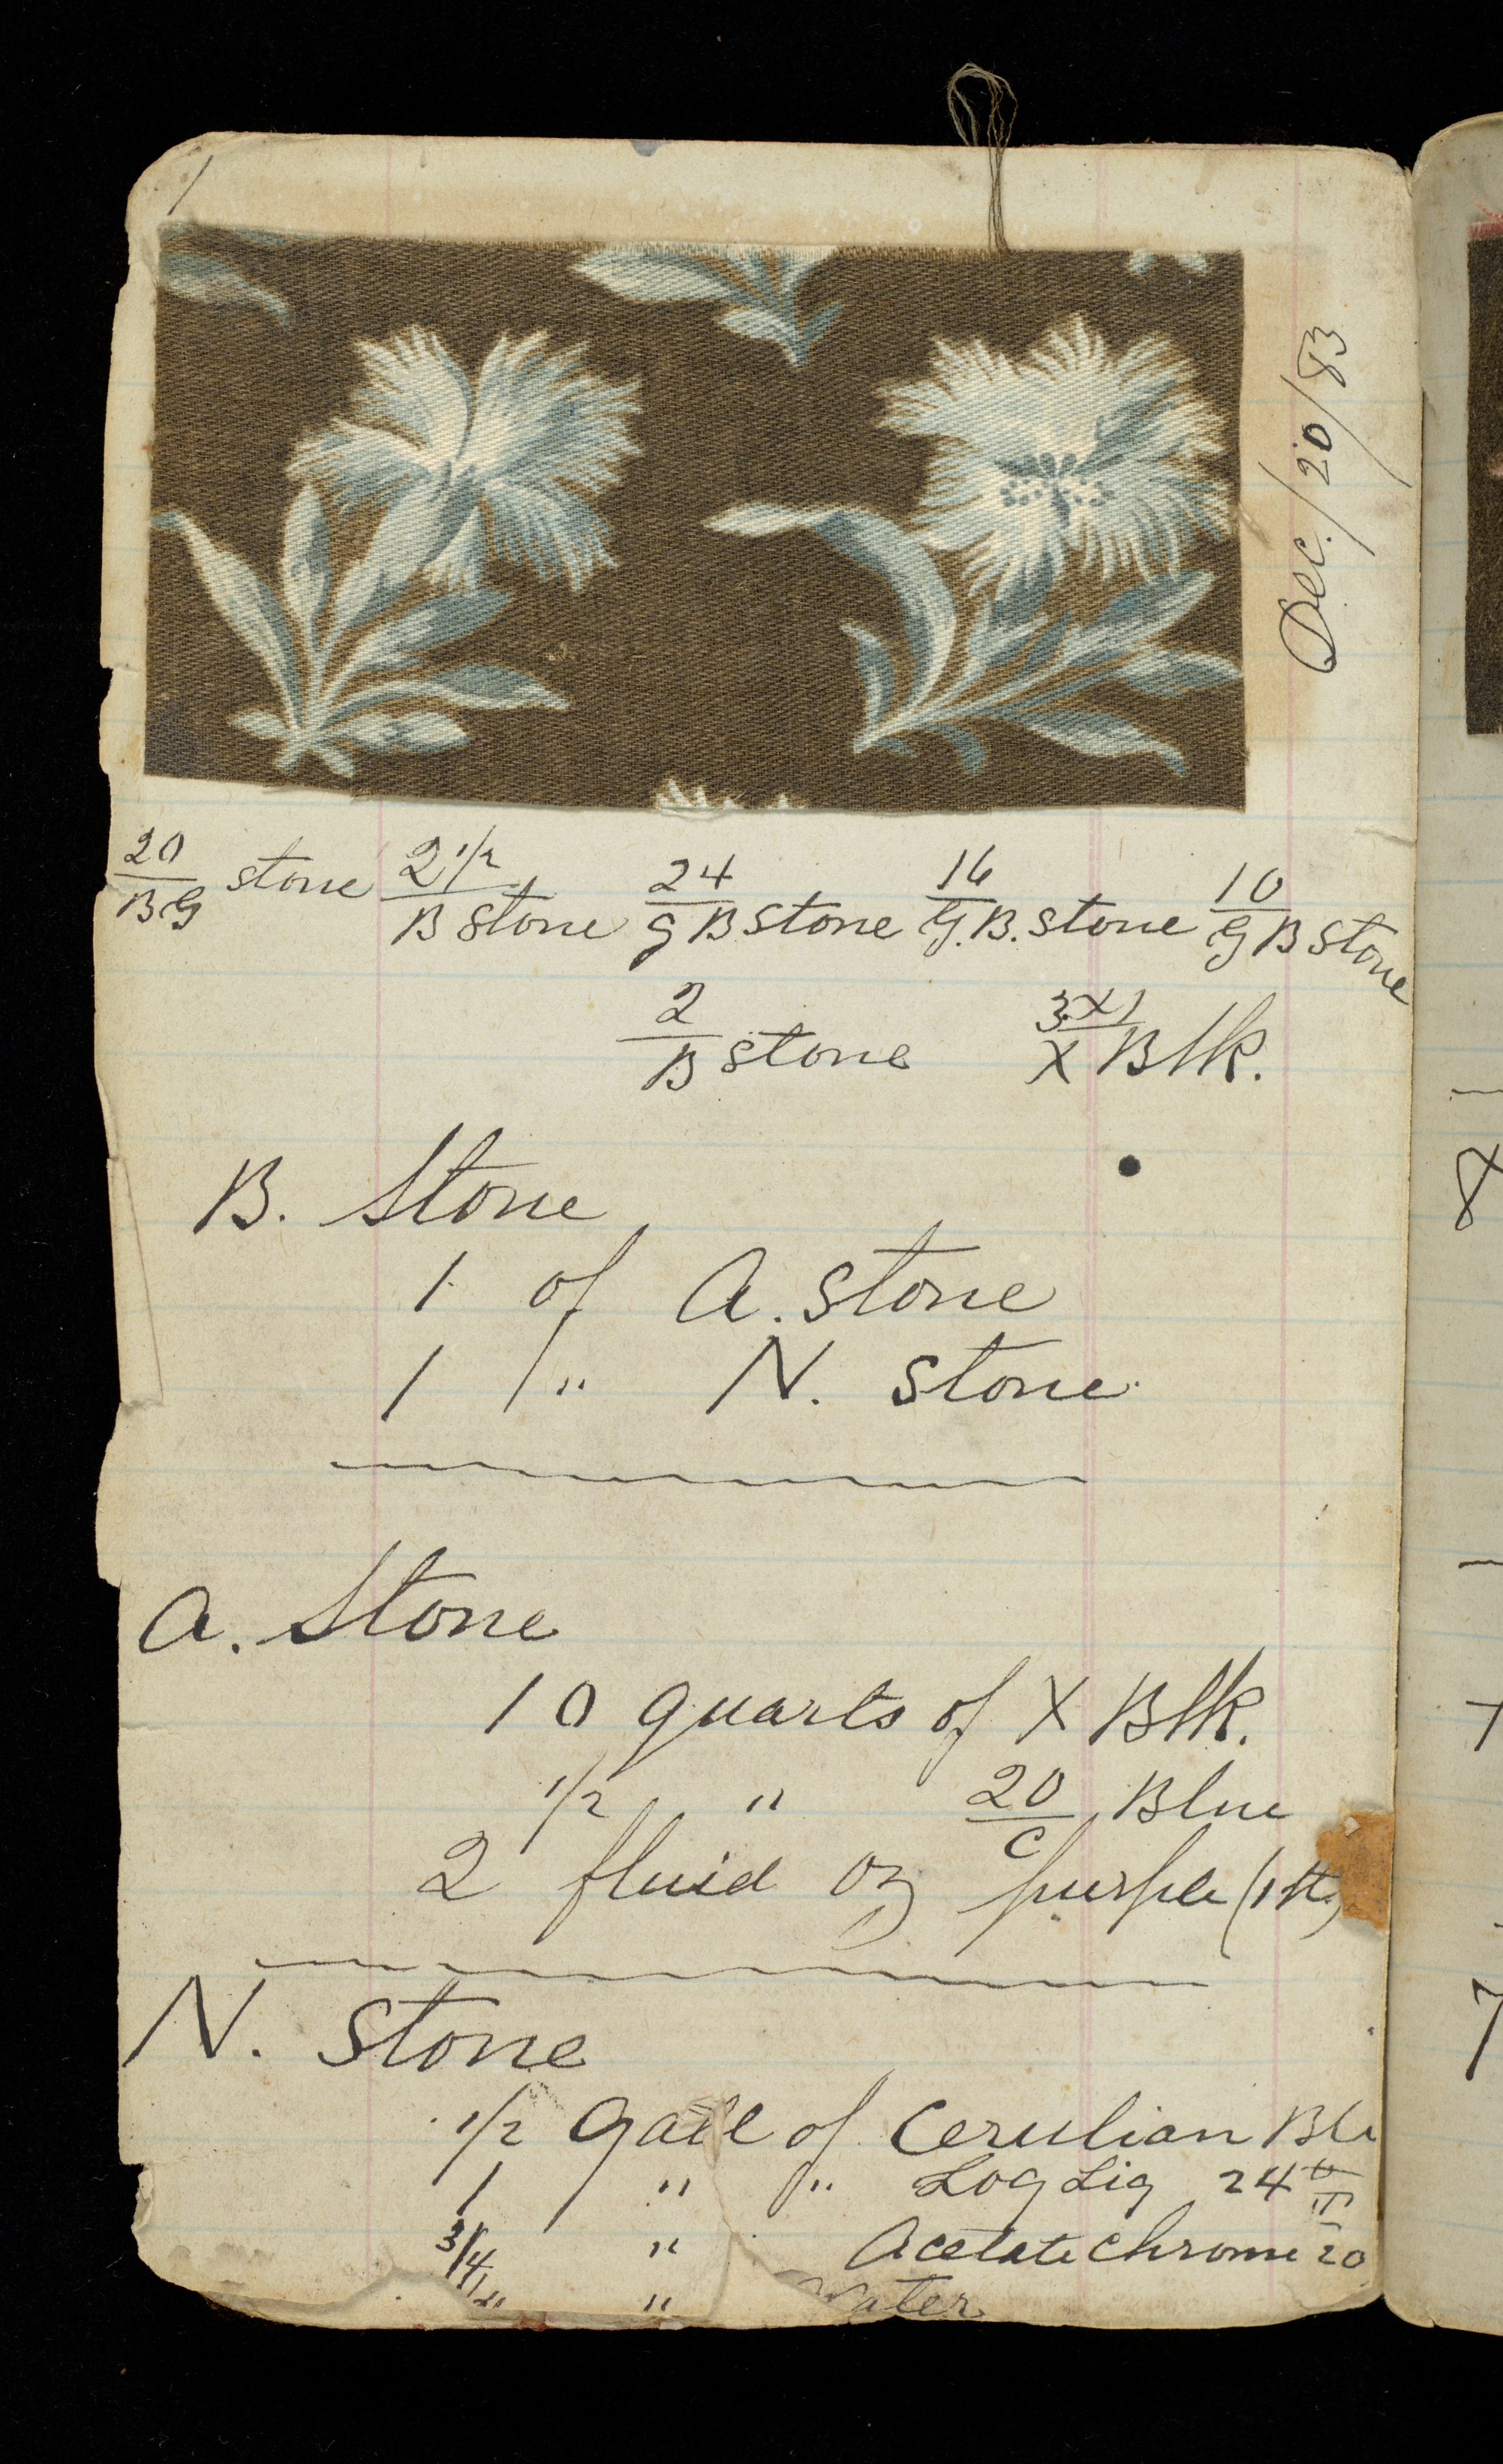 1
Dec./20/83
20/BG stone 2 1/2/B stone 24/GB stone 16/G.B. stone 10/GB stone
2/B stone 3x1/X Blk.
B. Stone
1 of A. Stone
1 " N. Stone
A. Stone
10 quarts of X Blk.
1/2 " 20/C Blue
2 fluid oz purple (1st)
N. Stone
1/2 Gall of Cerulian Bl
1 " " Log Liq 24
3/4 " Acetate chrome 20
" Water